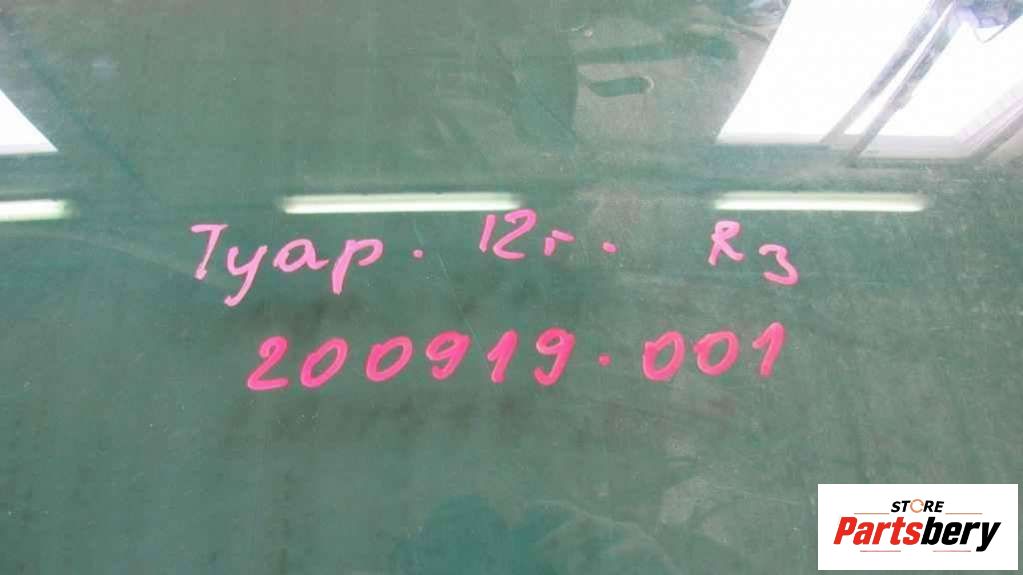 Туар. 12г. Rз
200919.001
STORE
Partsbery